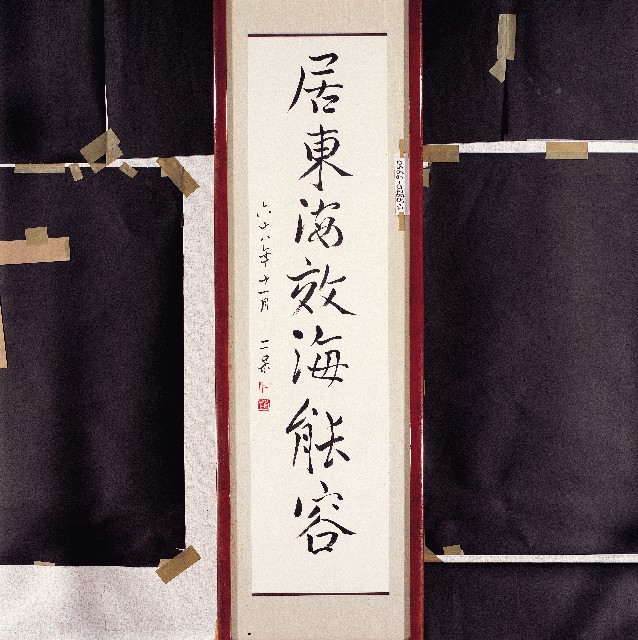 居東海效海能容
六十八年十一月 二呆